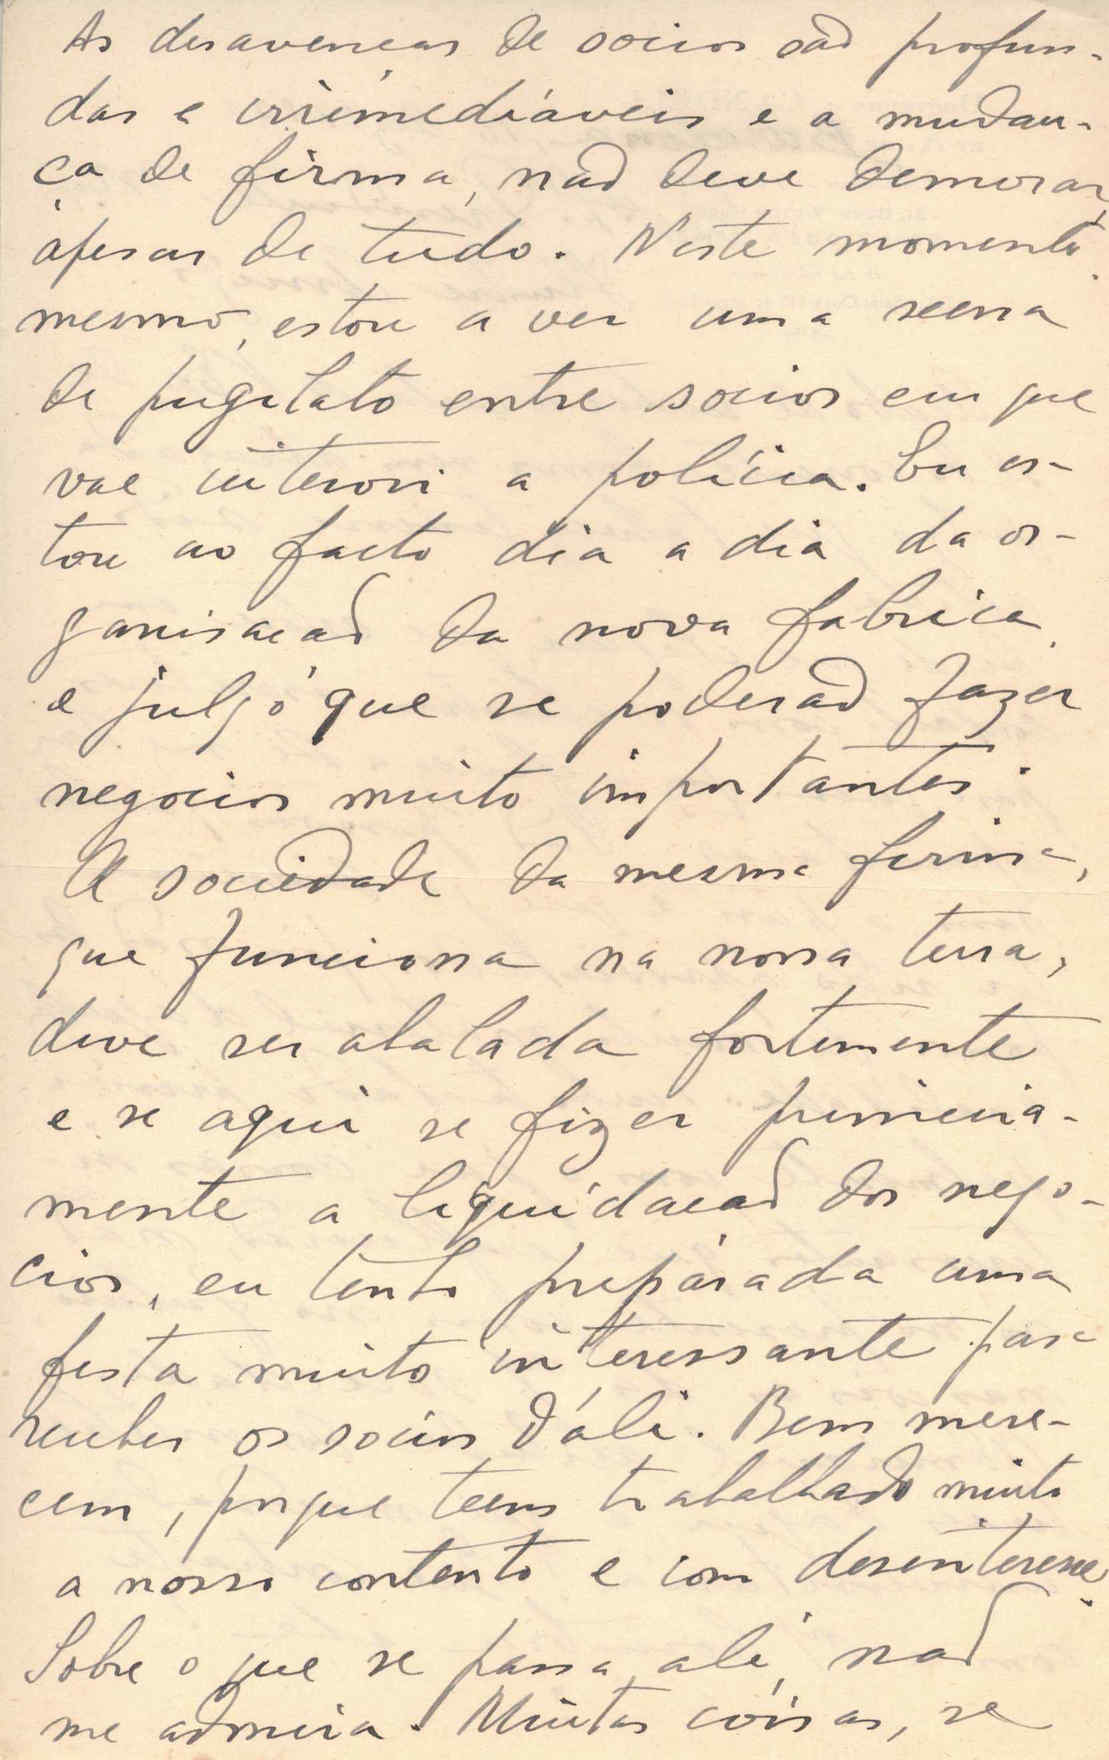 As desavenças de socios são profun-
das e irrimediáveis e a mudan-
ça de firma, não deve demorar,
ápesar de tudo. N'este momento
mesmo, estou a ver uma scena
de pugilato entre socios em que
vae intervir a polícia. Eu es-
tou ao facto dia a dia da or-
ganisação da nova fabrica
e julgo que se poderão fazer
negocios muito importantes.
A sociedade da mesma firma,
que funciona na nossa terra,
deve ser abalada fortemente
e se aqui se fizer primeira-
mente a liquidação dos nego-
cios, eu tenho preparada uma
festa muito interessante para
receber os socios d'ali. Bem mere-
cem, porque teem trabalhado muito
a nosso contento e com desinteresse.
Sobre o que se passa ali, não
me admira. Muitas cóisas, se